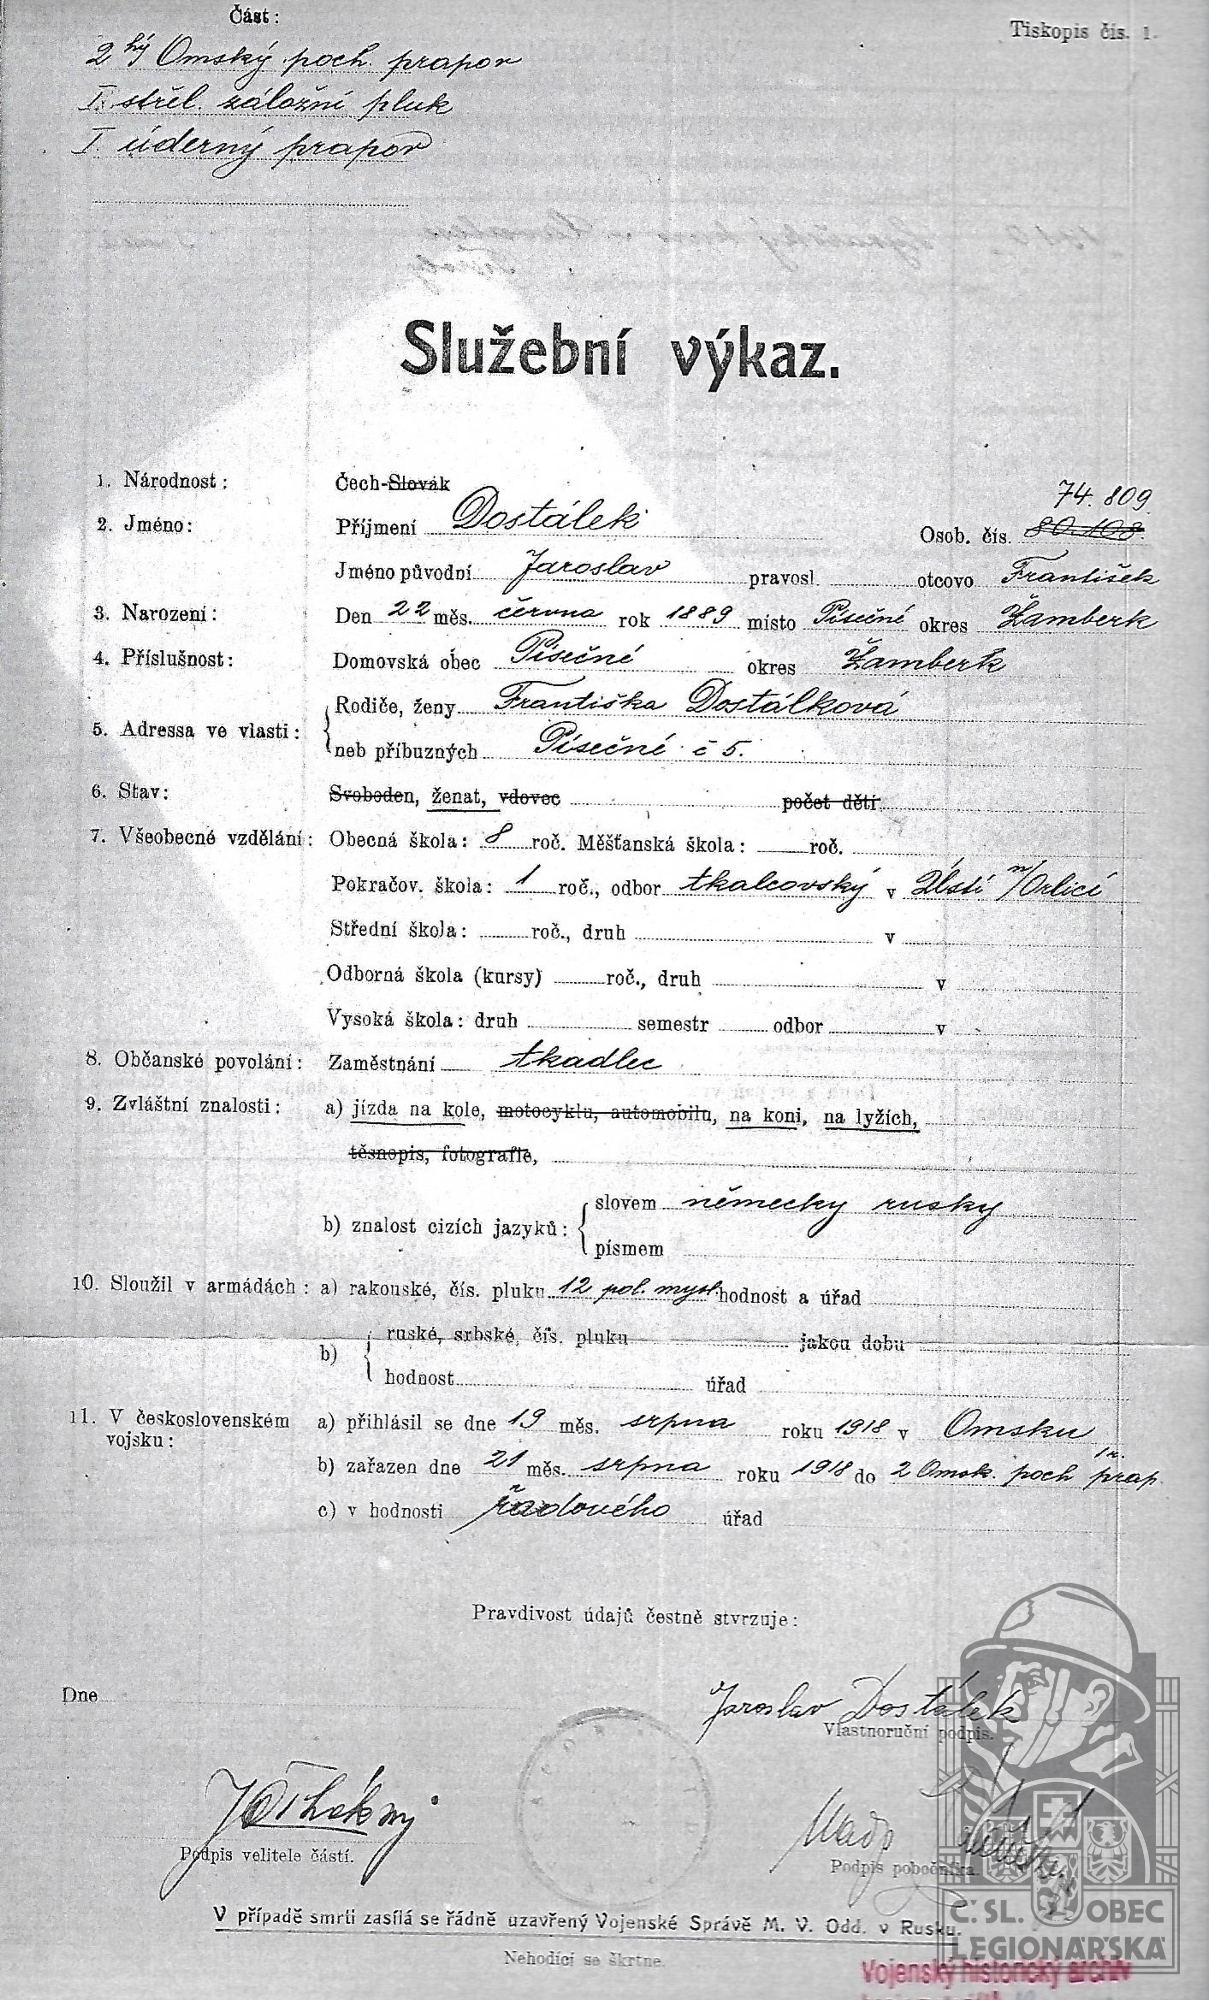 Část:
Tiskopis čís. 1.
2hý Omský poch. prapor
I. střel. záložní pluk
I úderný prapor
Služební výkaz.
1. Národnost: Čech-Slovák
74.809
2. Jméno: Příjmení Dostálek Osob. čís. 80.108
Jméno původní Jaroslav pravosl. otcovo František
3. Narození: Den 22 měs. června rok 1889 místo Písečné okres Žamberk
4. Příslušnost: Domovská obec Písečné okres Žamberk
5. Adressa ve vlasti: Rodiče, ženy Františka Dostálková
neb příbuzných Písečné č 5.
6. Stav: Svoboden, ženat, vdovec počet dětí
7. Všeobecné vzdělání: Obecná škola: 8 roč. Měšťanská škola: roč.
Pokračov. škola: 1 roč., odbor tkalcovský v Ústí n/Orlicí
Střední škola: roč., druh v
Odborná škola (kursy) roč., druh v
Vysoká škola: druh semestr odbor v
8. Občanské povolání: Zaměstnání tkadlec
9. Zvláštní znalosti: a) jízda na kole, motocyklu, automobilu, na koni, na lyžích,
těsnopis, fotografie,
b) znalost cizích jazyků: slovem německy rusky
písmem
10. Sloužil v armádách: a) rakouské, čís. pluku 12 pol. mysl. hodnost a úřad
b) ruské, srbské, čís. pluku jakou dobu
hodnost úřad
11. V československém vojsku: a) přihlásil se dne 19 měs. srpna roku 1918 v Omsku
b) zařazen dne 21 měs. srpna roku 1918 do 2 Omsk. poch prap.
c) v hodnosti řadového úřad
Pravdivost údajů čestně stvrzuje:
Dne
Jaroslav Dostálek
Vlastnoruční podpis.
Podpis velitele části.
Podpis pobočníka.
V případě smrti zasílá se řádně uzavřený Vojenské Správě M. V. Odd. v Rusku.
Nehodící se škrtne.
Č. SL. OBEC
LEGIONÁŘSKÁ
Vojenský historický archiv